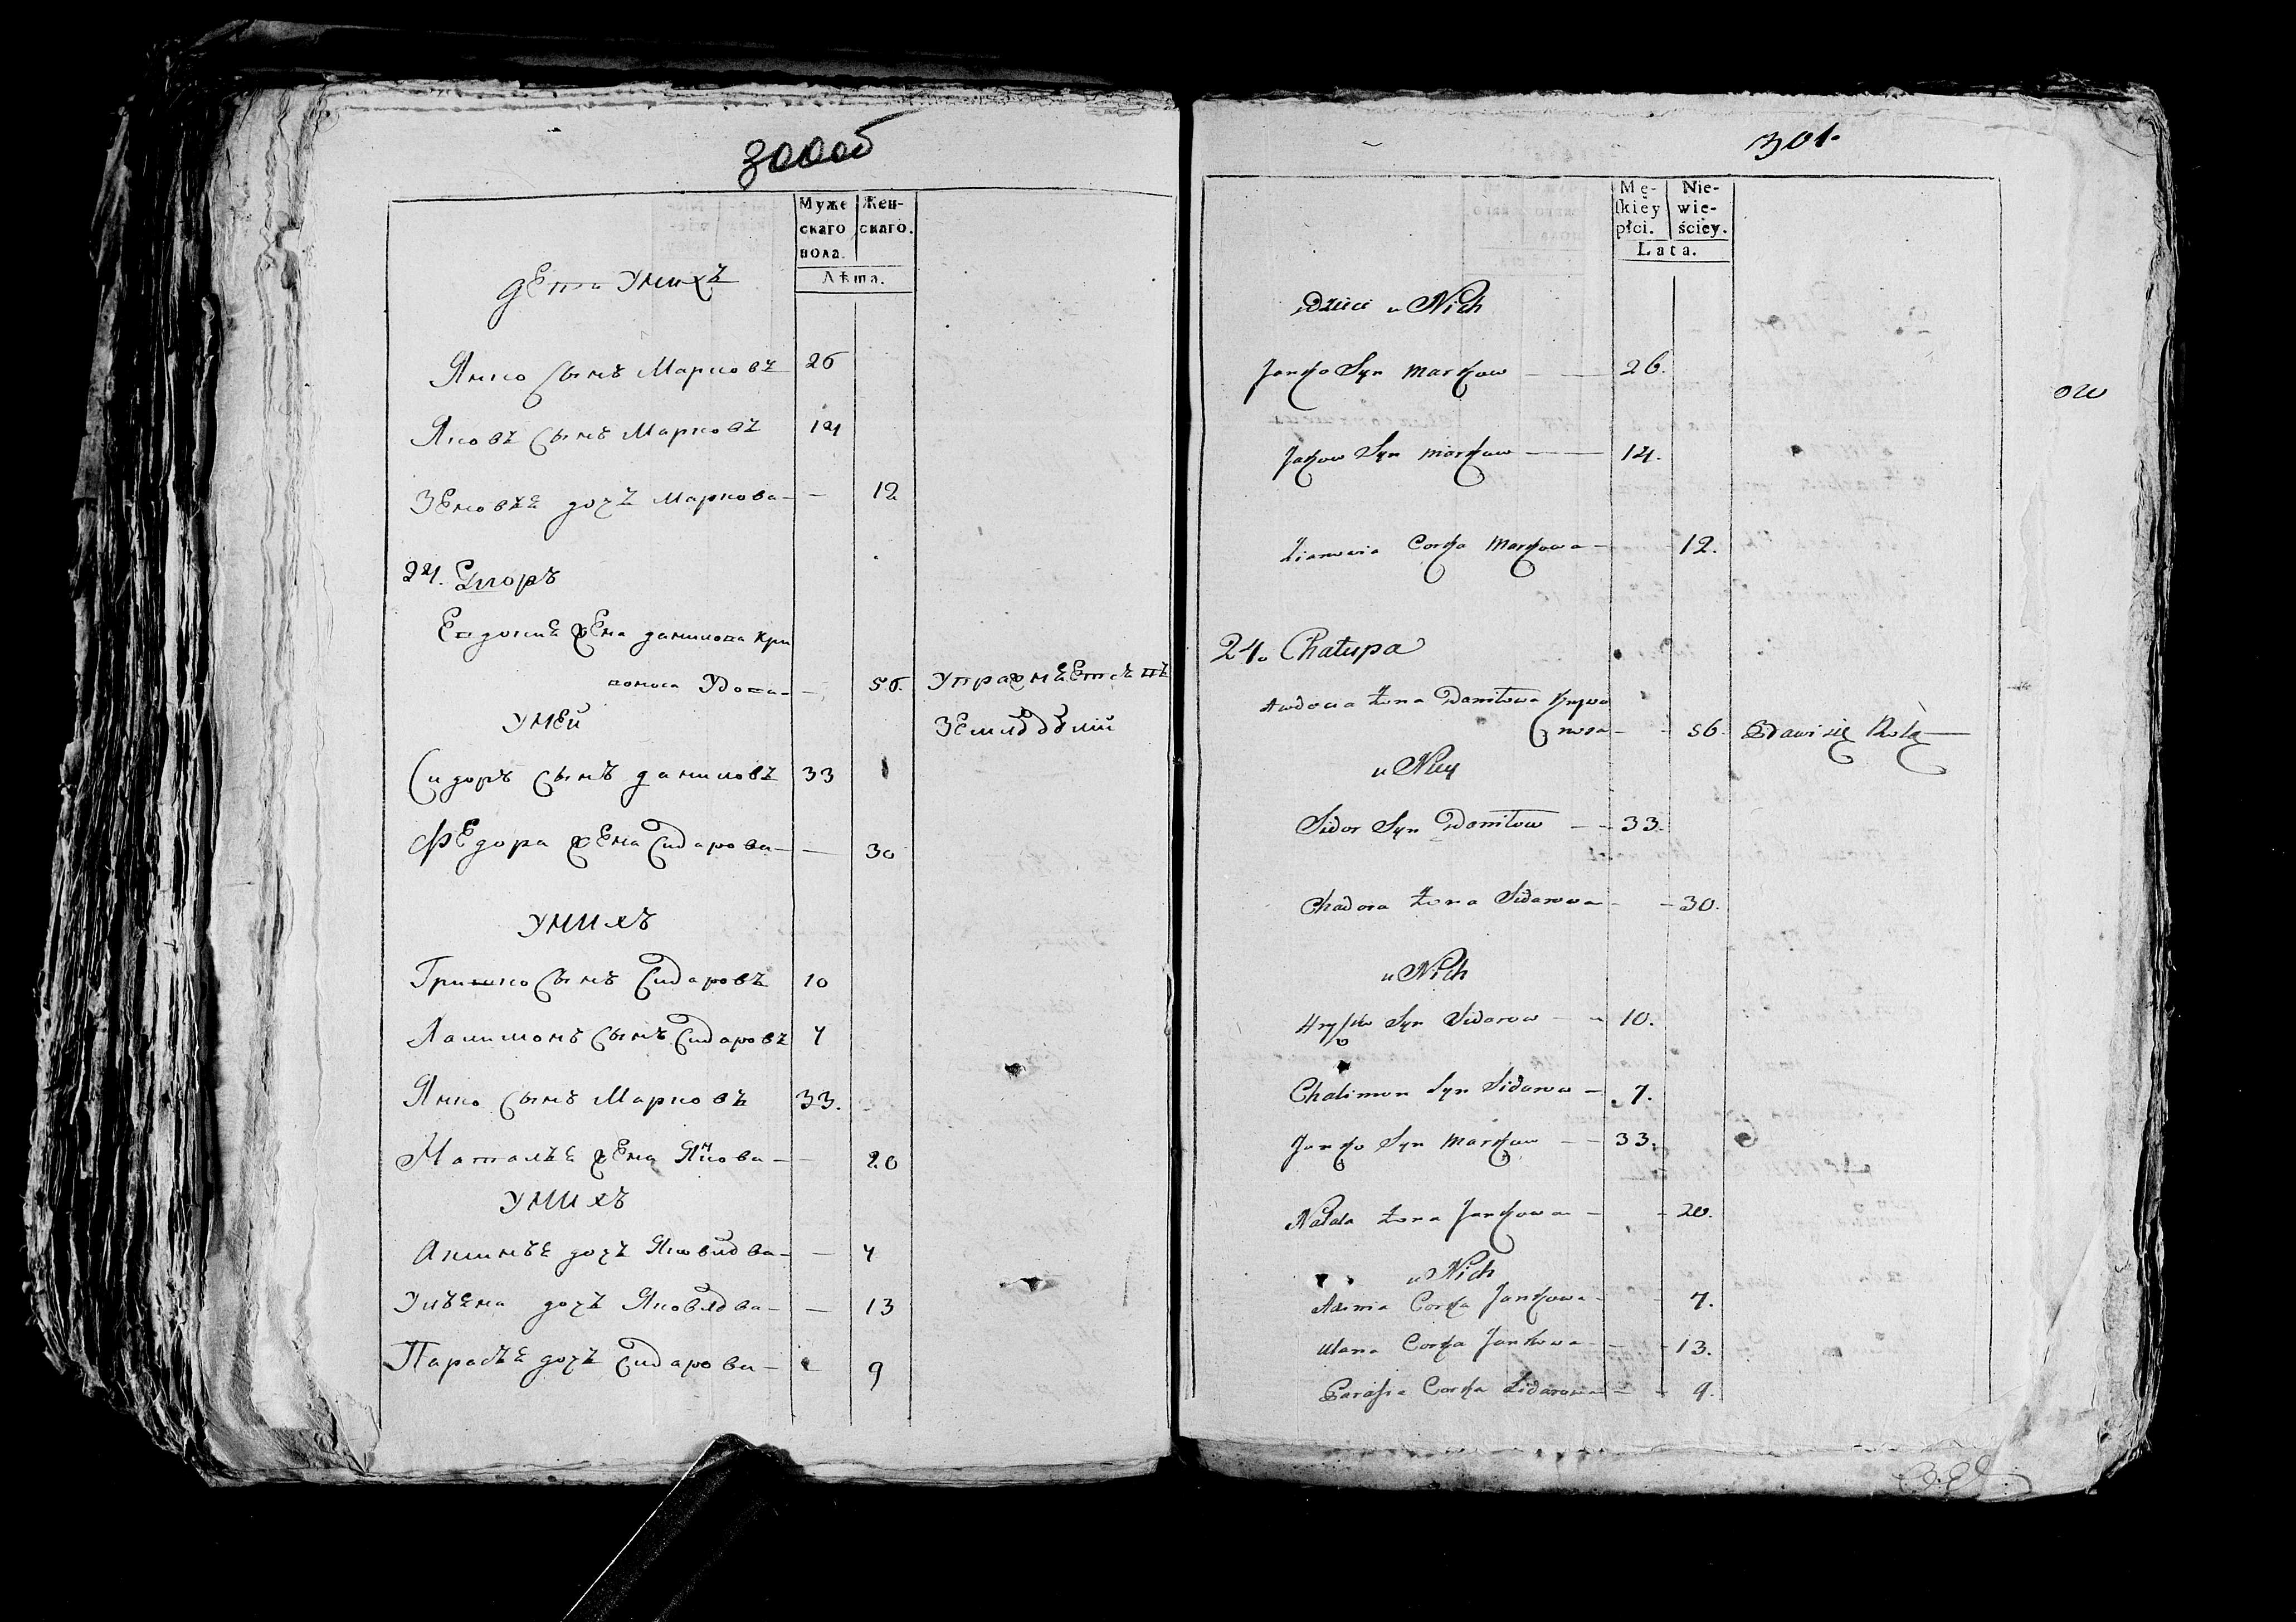 300об
Муже
скаго
пола.
Жен-
скаго.
Лѣта.
дети унихъ
Янко сынъ Марковъ 26
Яковъ сынъ Марковъ 14
Зеновѣя дочъ Маркова — — 12
24. Дворъ
Евдокия жена данилова Кри
воноса Удова — — 56. Упражняется въ
уней земледѣлии
Сидоръ сынъ даниловъ 33
Федора жена Сидарова — — 30
унихъ
Гришко сынъ Сидаровъ 10
Халимонъ сынъ Сидаровъ 7
Янко сынъ Марковъ 33.
Наталья жена Янкова — — 20
унихъ
Акинья дочъ — — 7
Ульяна дочъ — — 13
Парасья дочъ Сидарова — — 9
301.
Mę-
skiey
płci.
Nie-
wie-
ściey.
Lata.
Dzieci u Nich
Janko Syn Markow — — 26.
Jakow Syn Markow — — 14.
Zianowia Corka Markowa — 12.
24. Chałupa
Awdocia Żona Daniłowa Krywo
nosa — - 56. Bawi się Rolą —
u Niey
Sidor Syn Daniłow — — 33.
Chadora Żona Sidarowa — — 30.
u Nich
Hryszko Syn Sidarow — 10.
Chalimon Syn Sidarow — 7.
Janko Syn Markow — — 33.
Natala Żona Jankowa — — 20.
u Nich
Corka Jankowa — 7.
Ulana Corka Jankowa — — 13.
Parasia Corka Sidarowa — — 9.